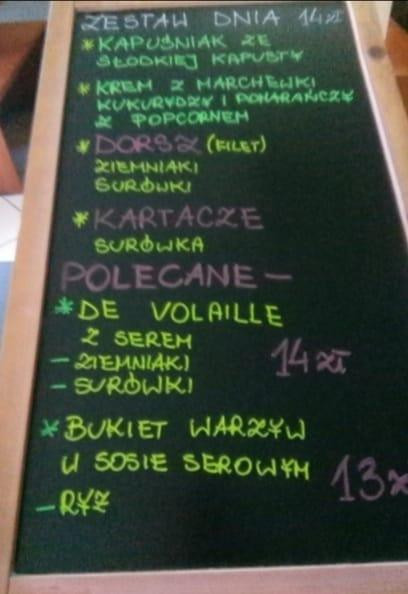 ZESTAW DNIA 14zł
* KAPUŚNIAK ZE
SŁODKIEJ KAPUSTY
* KREM Z MARCHEWKI
KUKURYDZY I POMARAŃCZY
Z POPCORNEM
* DORSZ (FILET)
ZIEMNIAKI
SURÓWKI
* KARTACZE
SURÓWKA
POLECANE —
* DE VOLAILLE
Z SEREM
- ZIEMNIAKI 14 zł
- SURÓWKI
* BUKIET WARZYW
W SOSIE SEROWYM 13z
- RYŻ